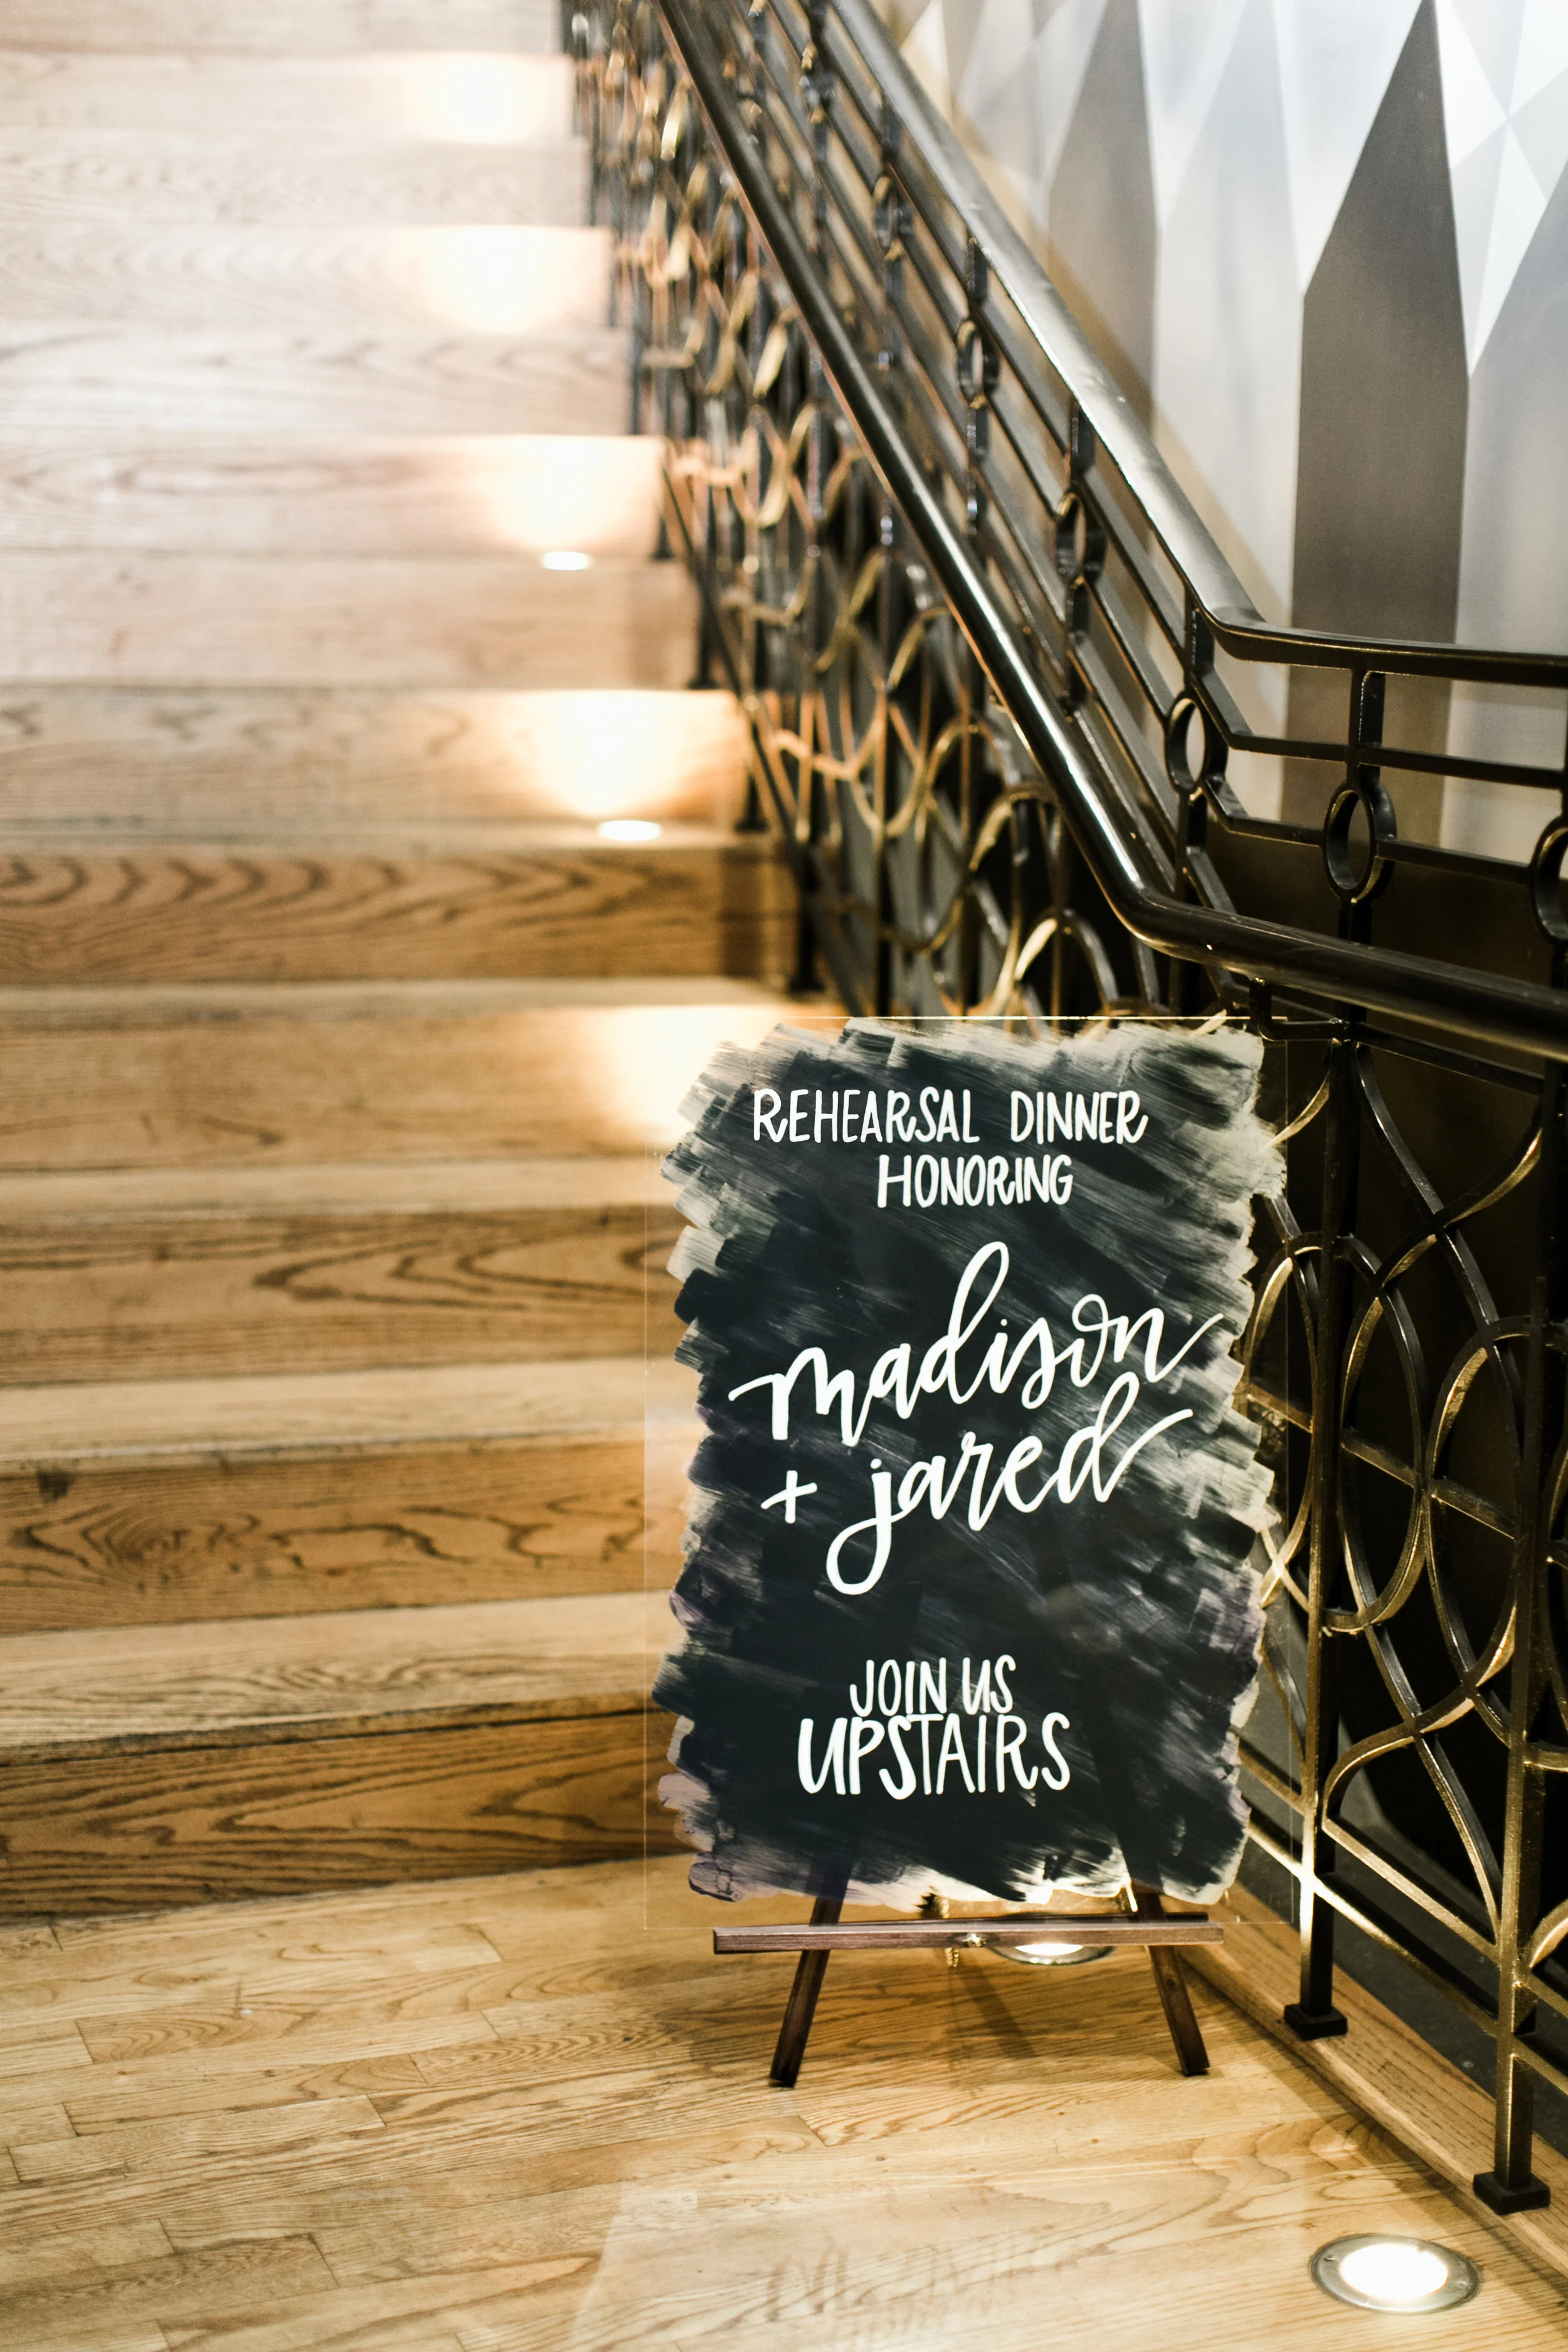 REHEARSAL DINNER
HONORING
madison
+ jared
JOIN US
UPSTAIRS